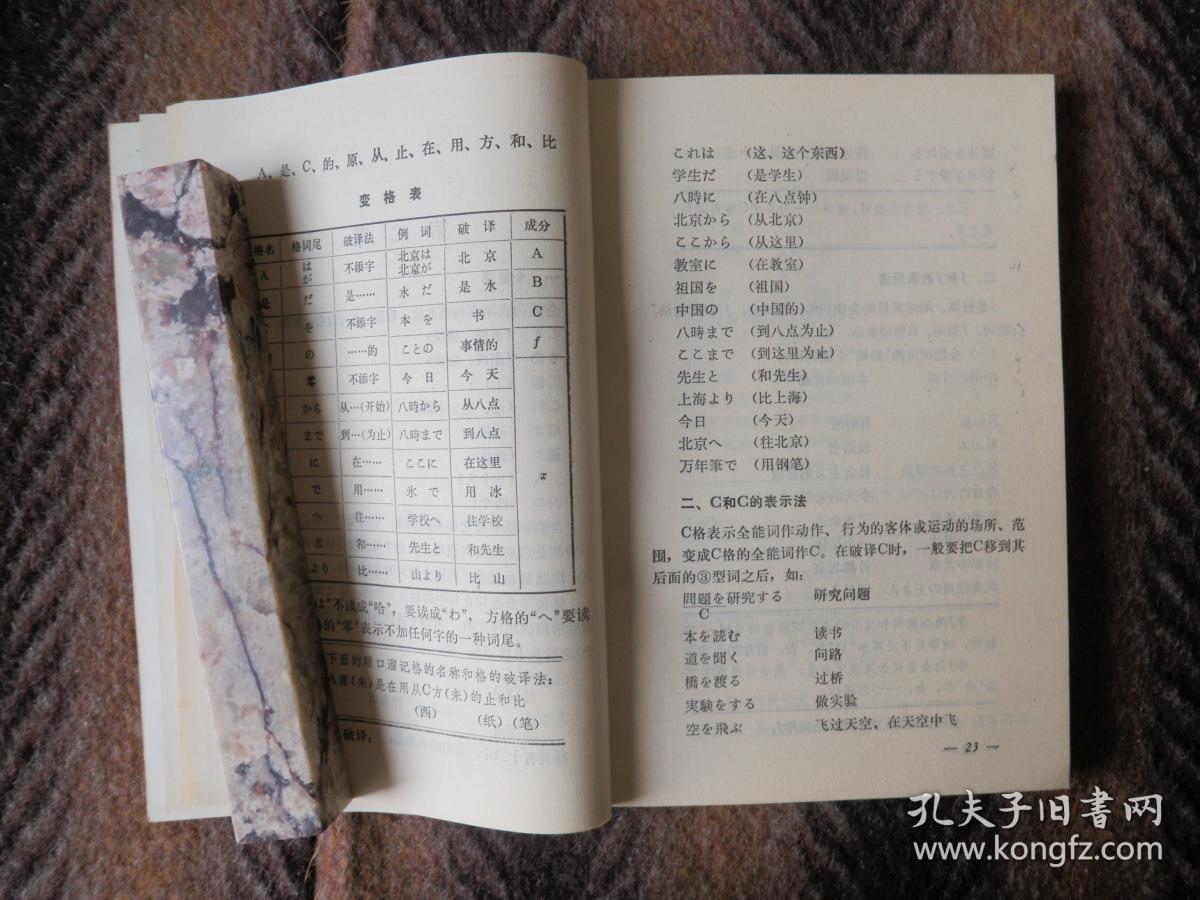 A、是、C、的、原、从、止、在、用、方、和、比
变格表
格名 格词尾 破译法 例词 破译 成分
A は が 不添字 北京は 北京が 北京 A
是 だ 是…… 水だ 是水 B
を 不添字 本を 书 C
の ……的 ことの 事情的 f
零 不添字 今日 今天
から 从…(开始) 八時から 从八点
まで 到…(为止) 八時まで 到八点
に 在…… ここに 在这里 x
で 用…… 氷で 用冰
へ 往…… 学校へ 往学校
と 和…… 先生と 和先生
より 比…… 山より 比山
は"不读成"哈"，要读成"わ"，方格的"へ"要读
的"零"表示不加任何字的一种词尾。
下面的顺口溜记格的名称和格的破译法：
A原(来)是在用从C方(来)的止和比
(西) (纸)(笔)
破译：
これは (这、这个东西)
学生だ (是学生)
八時に (在八点钟)
北京から (从北京)
ここから (从这里)
教室に (在教室)
祖国を (祖国)
中国の (中国的)
八時まで (到八点为止)
ここまで (到这里为止)
先生と (和先生)
上海より (比上海)
今日 (今天)
北京へ (往北京)
万年筆で (用钢笔)
二、C和C的表示法
C格表示全能词作动作、行为的客体或运动的场所、范
围，变成C格的全能词作C。在破译C时，一般要把C移到其
后面的③型词之后，如：
問題を研究する 研究问题
C
本を読む 读书
道を聞く 问路
橋を渡る 过桥
実験をする 做实验
空を飛ぶ 飞过天空、在天空中飞
— 23 —
孔夫子旧書网
www.kongfz.com